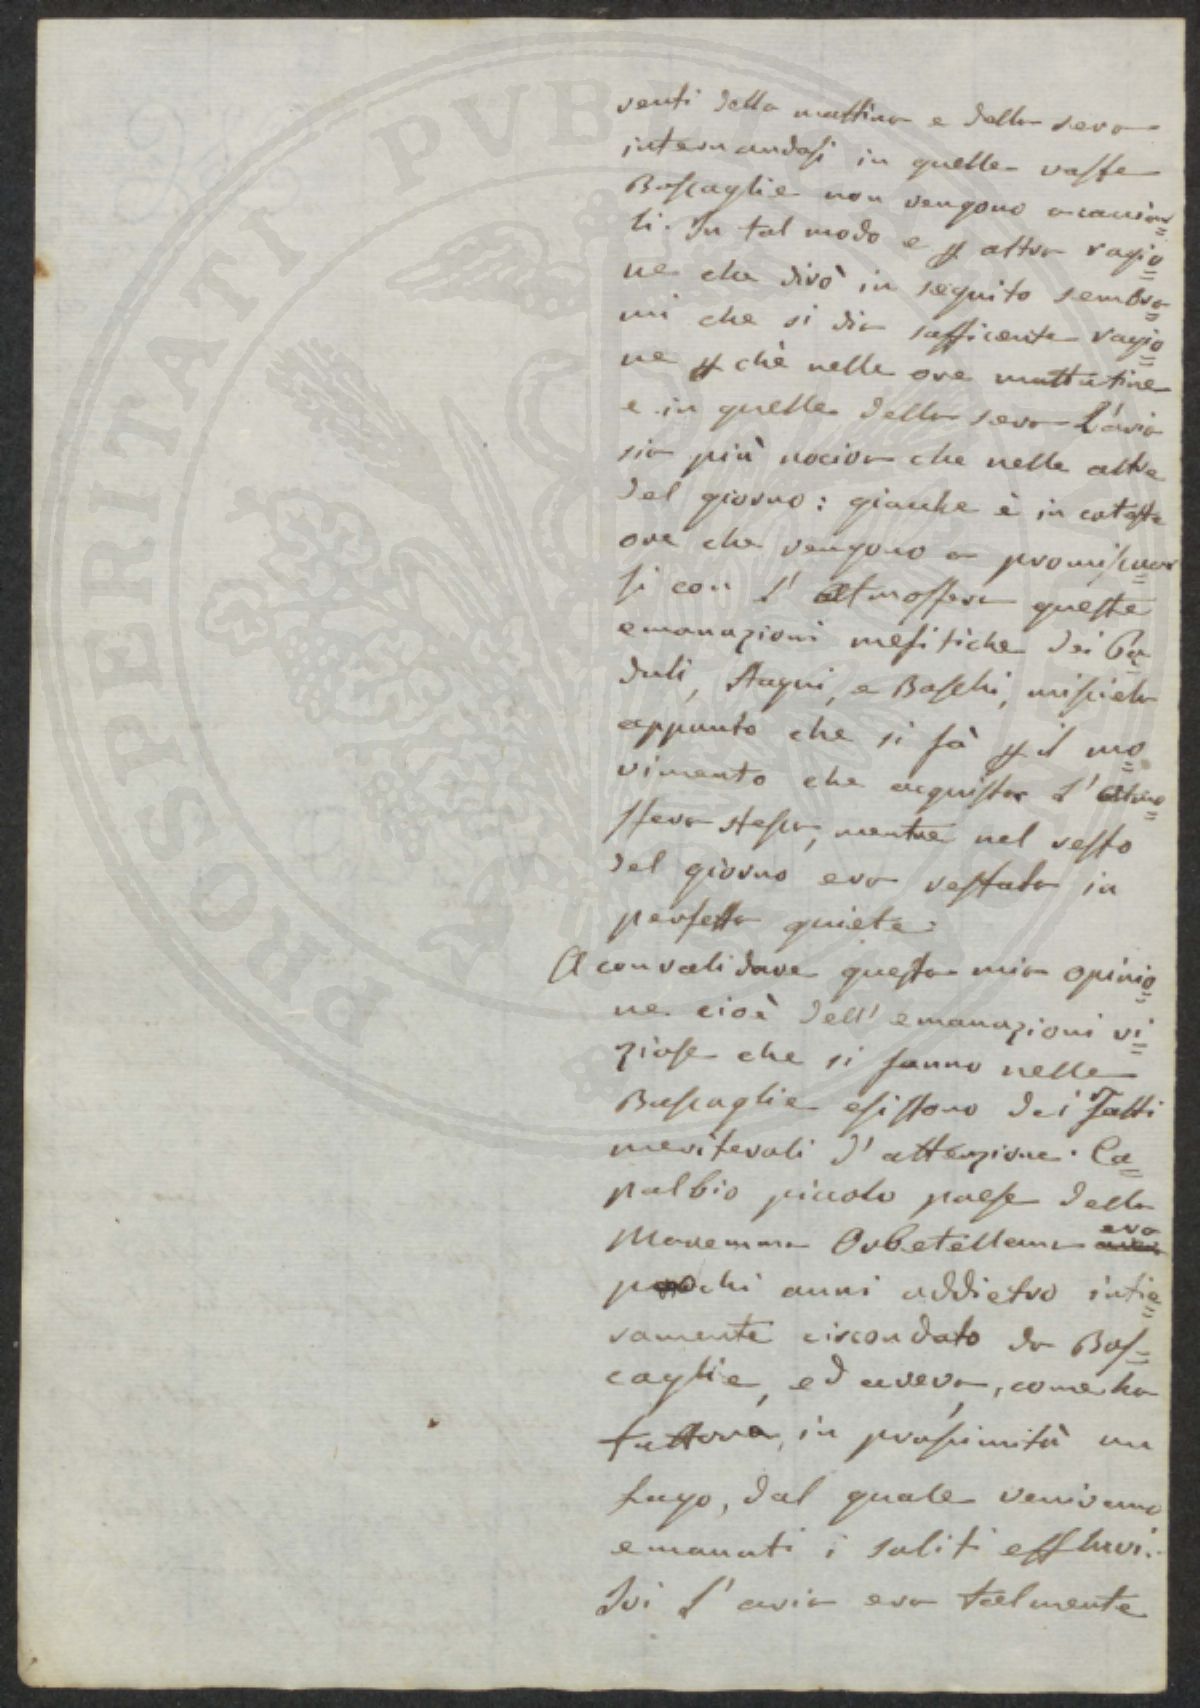 venti della mattina e della sera
internandosi in quelle vaste
Boscaglie non vengono a cacciar=
li. In tal modo e p altra ragio=
ne che dirò in seguito sembra=
mi che si dia sufficente ragio=
ne p chè nelle ore mattutine
e in quelle della sera l'aria
sia più nociva che nelle altre
del giorno: giacche è in coteste
ore che vengono a promiscuar=
si con l'atmosfera queste
emanazioni mefitiche dei Pa=
duli, Stagni, e Boschi, miscela
appunto che si fà p il mo=
vimento che acquista l'atmo=
sfera stessa, mentre nel resto
del giorno era restata in
perfetta quiete.
A convalidare questa mia opinio=
ne cioè dell'emanazioni vi=
ziose che si fanno nelle
Boscaglie esistono dei Fatti
meritevoli d'attenzione. Ca=
palbio piccolo paese della
Maremma Orbetellana era
pochi anni addietro intie=
ramente circondato da Bos=
caglie, ed aveva, come ha
tuttora, in prossimità un
Lago, dal quale venivano
emanati i soliti effluvi.
Ivi l'aria era talmente
PROSPERITATI PVBLICAE